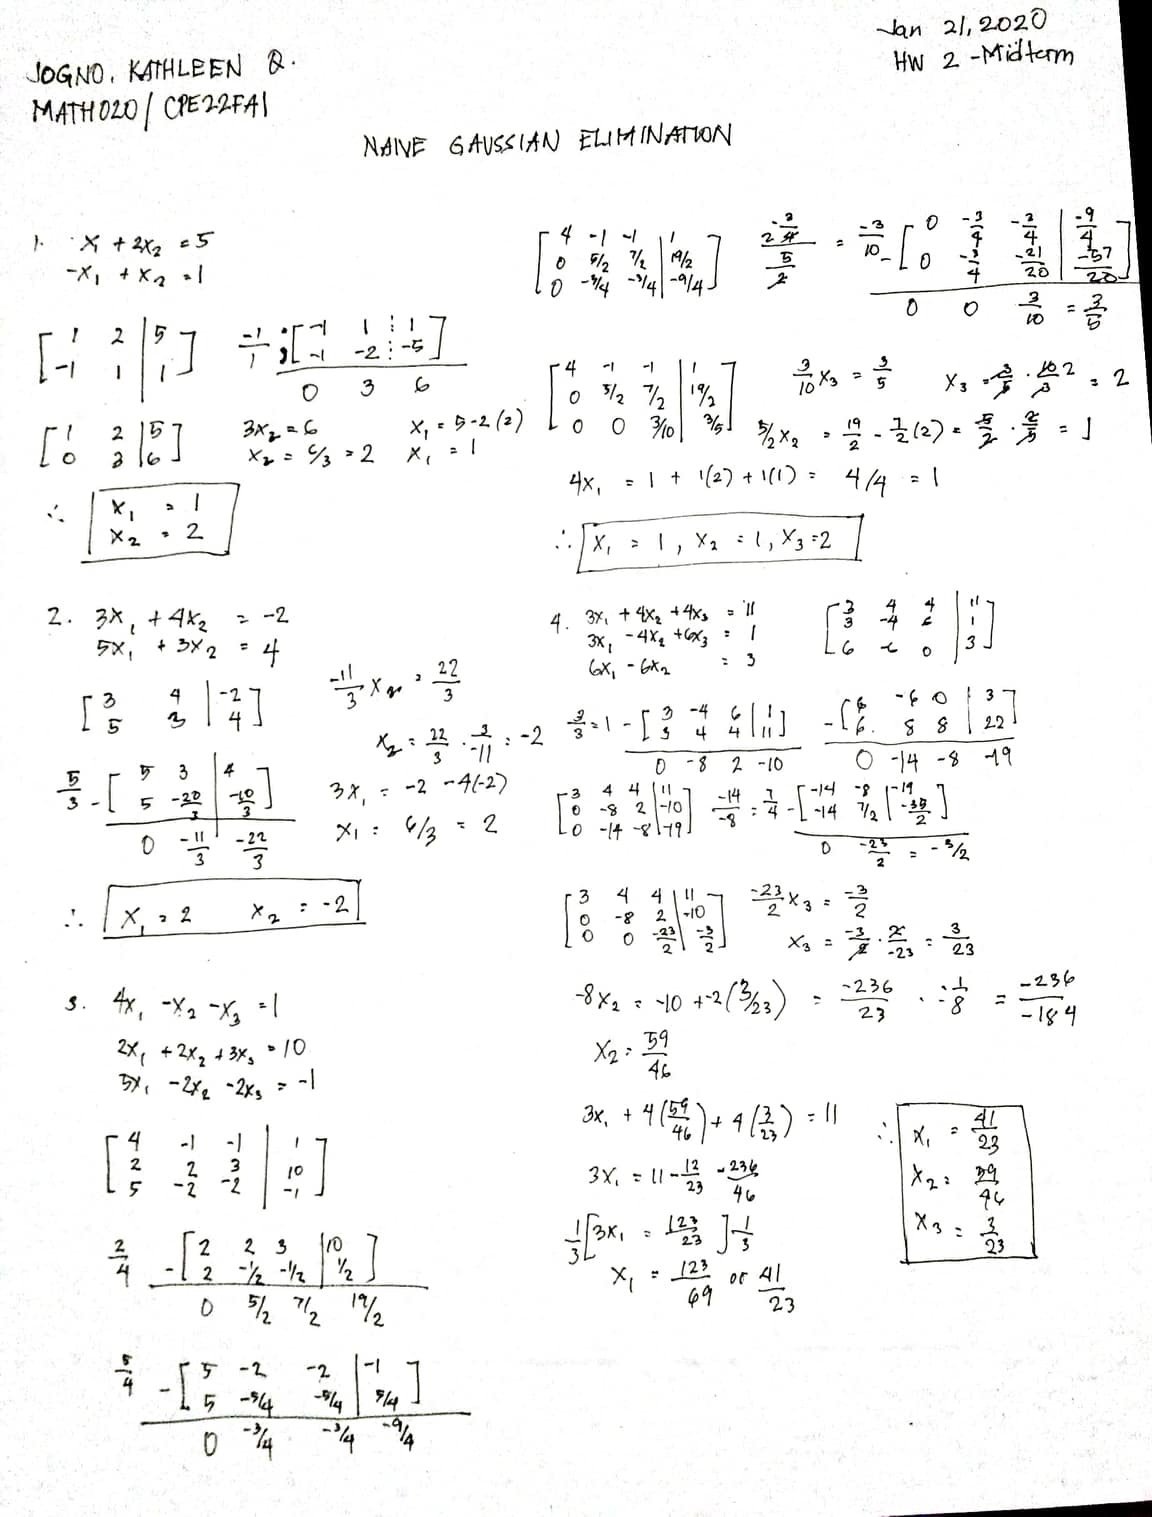 Jan 21, 2020
HW 2 - Midterm
JOGNO, KATHLEEN Q.
MATH020 / CPE22FA1
NAIVE GAUSSIAN ELIMINATION
1. x + 2x₂ = 5
-x₁ + x₂ = 1
[1 2 | 5]
[-1 1 | 1]
-1/1 ; [-1 1 ⋮ 1]
[-1 -2 ⋮ -5]
0 3 6
[1 2 | 5]
[0 3 | 6]
3x₂ = 6
x₂ = 6/3 = 2
x₁ = 5 - 2(2)
x₁ = 1
∴ x₁ = 1
x₂ = 2
2. 3x₁ + 4x₂ = -2
5x₁ + 3x₂ = 4
[3 4 | -2]
[5 3 | 4]
5/3 - [5 3 | 4]
[5 -20/3 | -10/3]
0 -11/3 -22/3
-11/3 x₂ = 22/3
x₂ = 22/3 · 3/-11 = -2
3x₁ = -2 - 4(-2)
x₁ = 6/3 = 2
∴ x₁ = 2 x₂ = -2
3. 4x₁ - x₂ - x₃ = 1
2x₁ + 2x₂ + 3x₃ = 10
5x₁ - 2x₂ - 2x₃ = -1
[4 -1 -1 | 1]
[2 2 3 | 10]
[5 -2 -2 | -1]
2/4 - [2 2 3 | 10]
[2 -1/2 -1/2 | 1/2]
0 5/2 7/2 19/2
5/4 - [5 -2 -2 | -1]
[5 -5/4 -5/4 | 5/4]
0 -3/4 -3/4 -9/4
[4 -1 -1 | 1]
[0 5/2 7/2 | 19/2]
[0 -3/4 -3/4 | -9/4]
= -3/10 - [0 -3/4 -3/4 | -9/4]
[0 -3/4 -21/20 | -57/20]
0 0 3/10 = 3/5
[4 -1 -1 | 1]
[0 5/2 7/2 | 19/2]
[0 0 3/10 | 3/5]
3/10 x₃ = 3/5
x₃ = 3/5 · 10/3 2 = 2
5/2 x₂ = 19/2 - 7/2 (2) = 5/2 · 2/5 = 1
4x₁ = 1 + 1(2) + 1(1) = 4/4 = 1
∴ x₁ = 1, x₂ = 1, x₃ = 2
4. 3x₁ + 4x₂ + 4x₃ = 11
3x₁ - 4x₂ + 6x₃ = 1
6x₁ - 6x₂ = 3
[3 4 4 | 11]
[3 -4 6 | 1]
[6 -6 0 | 3]
3/3 = 1 - [3 -4 6 | 1]
[3 4 4 | 11]
0 -8 2 -10
- [6 -6 0 | 3]
[6 8 8 | 22]
0 -14 -8 -19
[3 4 4 | 11]
[0 -8 2 | -10]
[0 -14 -8 | -19]
-14/-8 = 7/4 - [-14 -8 | -19]
[-14 7/2 | -35/2]
0 -23/2 = -3/2
[3 4 4 | 11]
[0 -8 2 | -10]
[0 0 -23/2 | -3/2]
-23/2 x₃ = -3/2
x₃ = -3/2 · 2/-23 = 3/23
-8x₂ = -10 + -2(3/23) = -236/23 · -1/8 = -236/-184
x₂ = 59/46
3x₁ + 4(59/46) + 4(3/23) = 11
3x₁ = 11 - 12/23 - 236/46
1/3[3x₁ = 123/23]1/3
x₁ = 123/69 or 41/23
∴ x₁ = 41/23
x₂ = 59/46
x₃ = 3/23